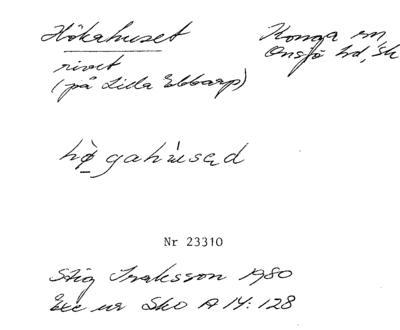 Hökahuset
rivet
(på Lilla Ebbarp)
Konga sn,
Onsjö hd, Sk
hø̀gahùsəd
Nr 23310
Stig Isaksson 1980
Exc ur Sko A 14:128